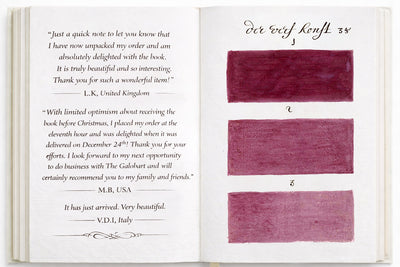 "Just a quick note to let you know that
I have now unpacked my order and am
absolutely delighted with the book.
It is truly beautiful and so interesting.
Thank you for such a wonderful item!"
— L.K, United Kingdom —
"With limited optimism about receiving the
book before Christmas, I placed my order at the
eleventh hour and was delighted when it was
delivered on December 24th! Thank you for your
efforts. I look forward to my next opportunity
to do business with The Galobart and will
certainly recommend you to my family and friends."
— M.B, USA —
It has just arrived. Very beautiful.
— V.D.I, Italy —
der verf konst
1
2
3